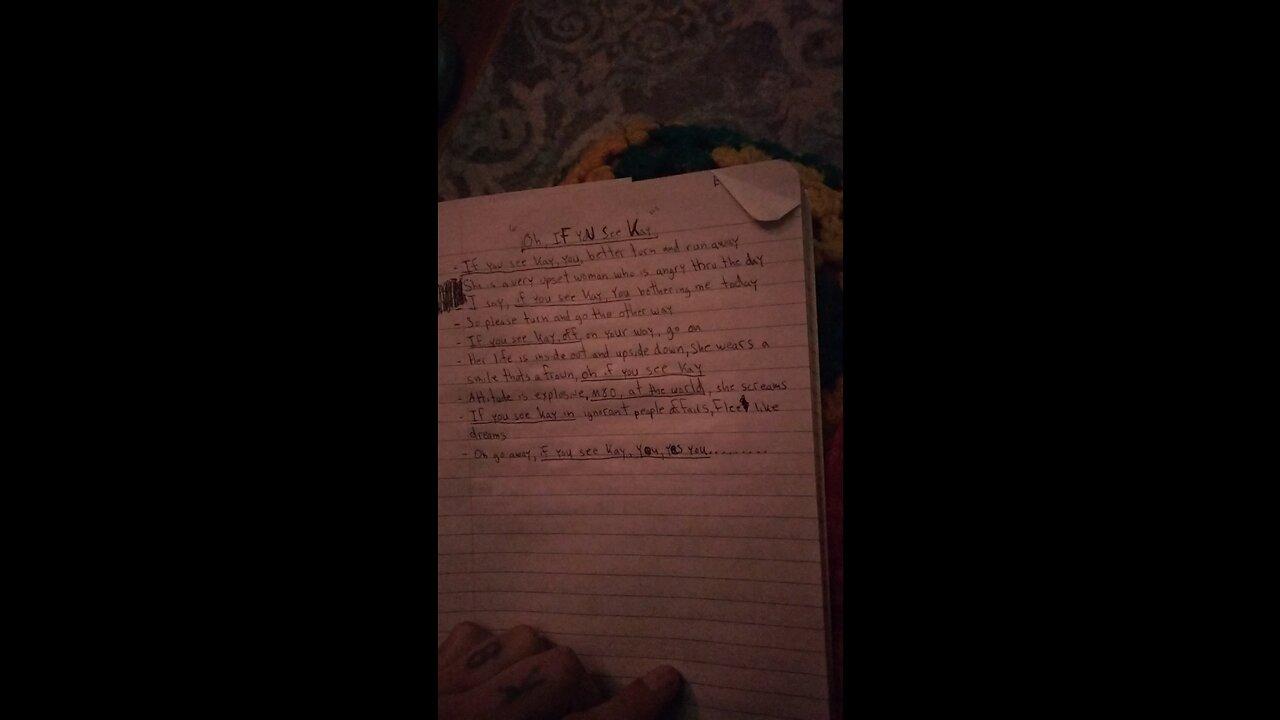 "Oh, IF YOU See Kay"
- If you see Kay, you, better turn and run away
She is a very upset woman who is angry thru the day
I say, if you see Kay, You bothering me today
- So please turn and go the other way
- If you see Kay off on your way, go on
- Her life is inside out and upside down, she wears a
smile thats a frown, oh if you see Kay
- Attitude is explosive, M80, at the world, she screams
- If you see Kay in ignorant people &, Flee like
dreams
- Oh go away, if you see Kay, You, yes you.........